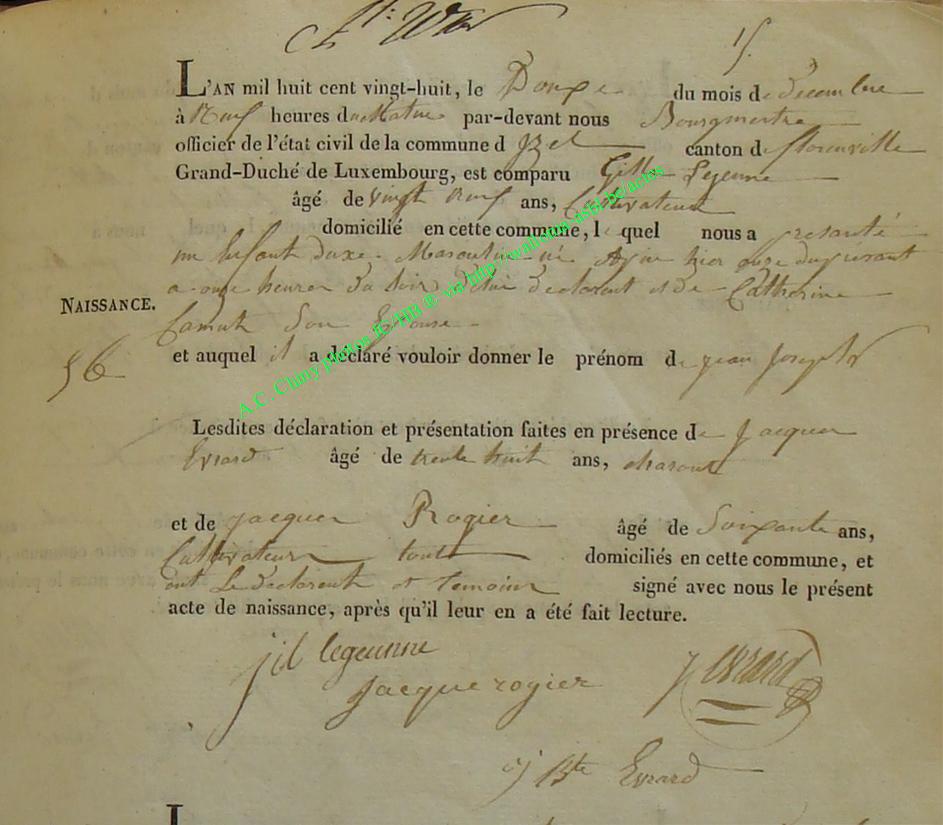 15.
L'AN mil huit cent vingt-huit, le Douze du mois de Decembre
à Neuf heures du Matin par-devant nous Bourgmestre
officier de l'état civil de la commune d'Izel canton de florenville
Grand-Duché de Luxembourg, est comparu Gille Lejeune
âgé de vingt neuf ans, Cultivateur
domicilié en cette commune, le quel nous a presenté
un Enfant du sexe Masculin né hier onze du courant
a onze heures du Soir de lui declarant et de Catherine
son Epouse
NAISSANCE.
56
et auquel il a déclaré vouloir donner le prénom de jean Joseph
Lesdites déclaration et présentation faites en présence de Jacques
Evrard âgé de trente huit ans,
et de jacques Rogier âgé de Soixante ans,
Cultivateurs tout domiciliés en cette commune, et
ont Le declarant et temoins signé avec nous le présent
acte de naissance, après qu'il leur en a été fait lecture.
jil legeunne
jacque rogier
J Evrard
j Bte Evrard
A.C. Chiny photos JC HB ® via http://wallonia.asbl.be/actes
L